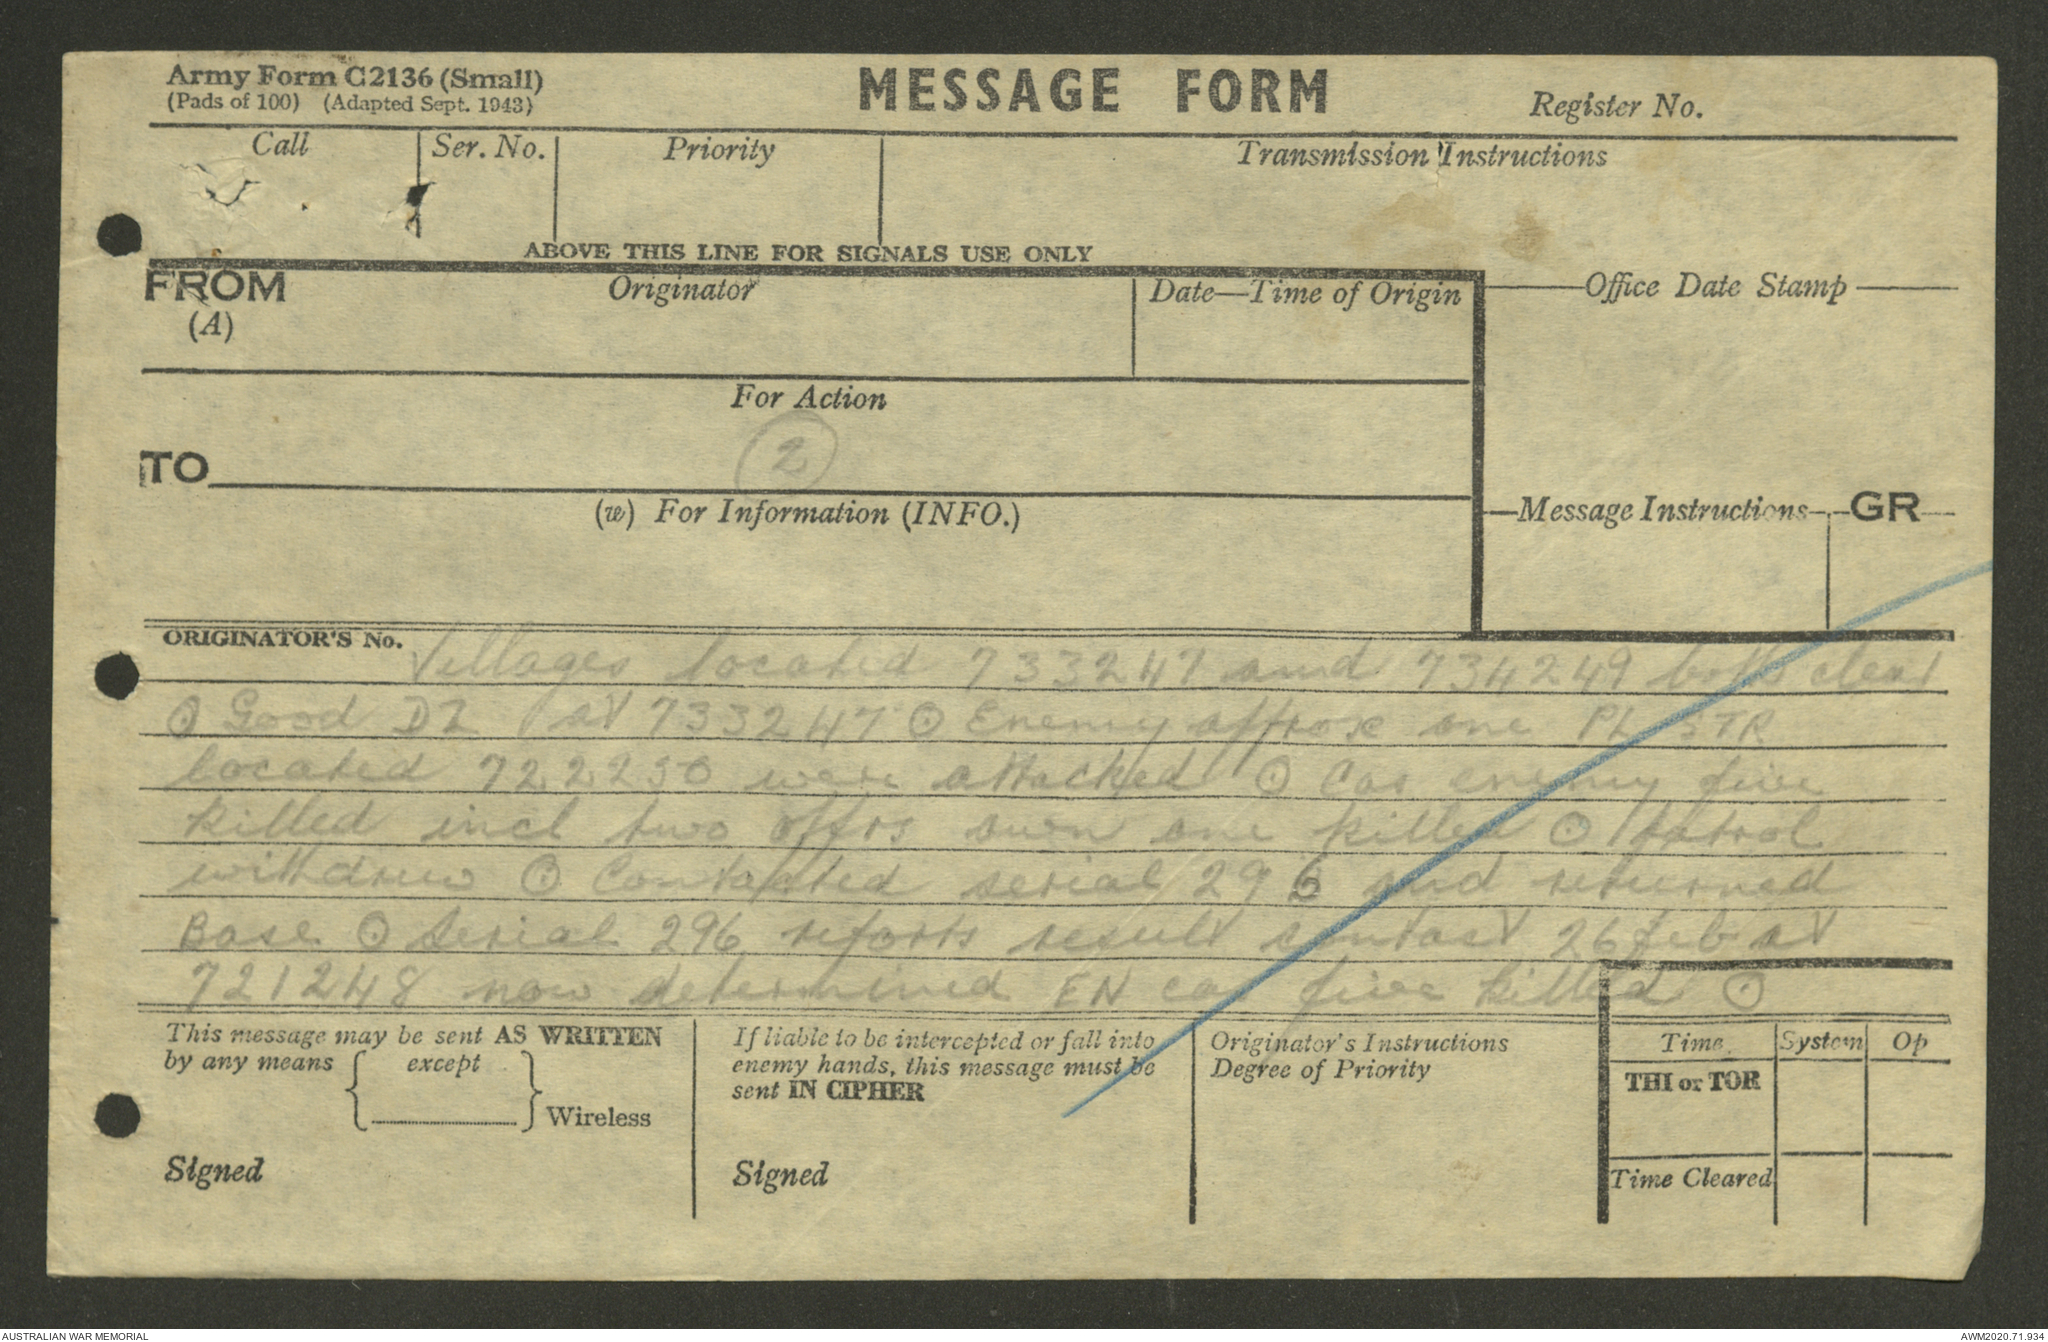 Army Form C2136 (Small)
(Pads of 100) (Adapted Sept. 1943)
MESSAGE FORM
Register No.
Call
Ser. No.
Priority
Transmission Instructions
ABOVE THIS LINE FOR SIGNALS USE ONLY
FROM
(A)
Originator
Date—Time of Origin
Office Date Stamp
For Action
TO
2
(w) For Information (INFO.)
Message Instructions
GR
ORIGINATOR'S No.
Villages located 733247 and 734249 both clear
⊙ Good DZ at 733247 ⊙ Enemy approx one PL STR
located 722250 were attacked ⊙ Cas enemy five
killed incl two offrs own one killed ⊙ patrol
withdrew ⊙ Contacted serial 296 and returned
Base ⊙ Serial 296 reports result contact 26 Feb at
721248 now determined EN cas five killed ⊙
This message may be sent AS WRITTEN
by any means
except
Wireless
Signed
If liable to be intercepted or fall into
enemy hands, this message must be
sent IN CIPHER
Signed
Originator's Instructions
Degree of Priority
Time
System
Op
THI or TOR
Time Cleared
AUSTRALIAN WAR MEMORIAL
AWM2020.71.934